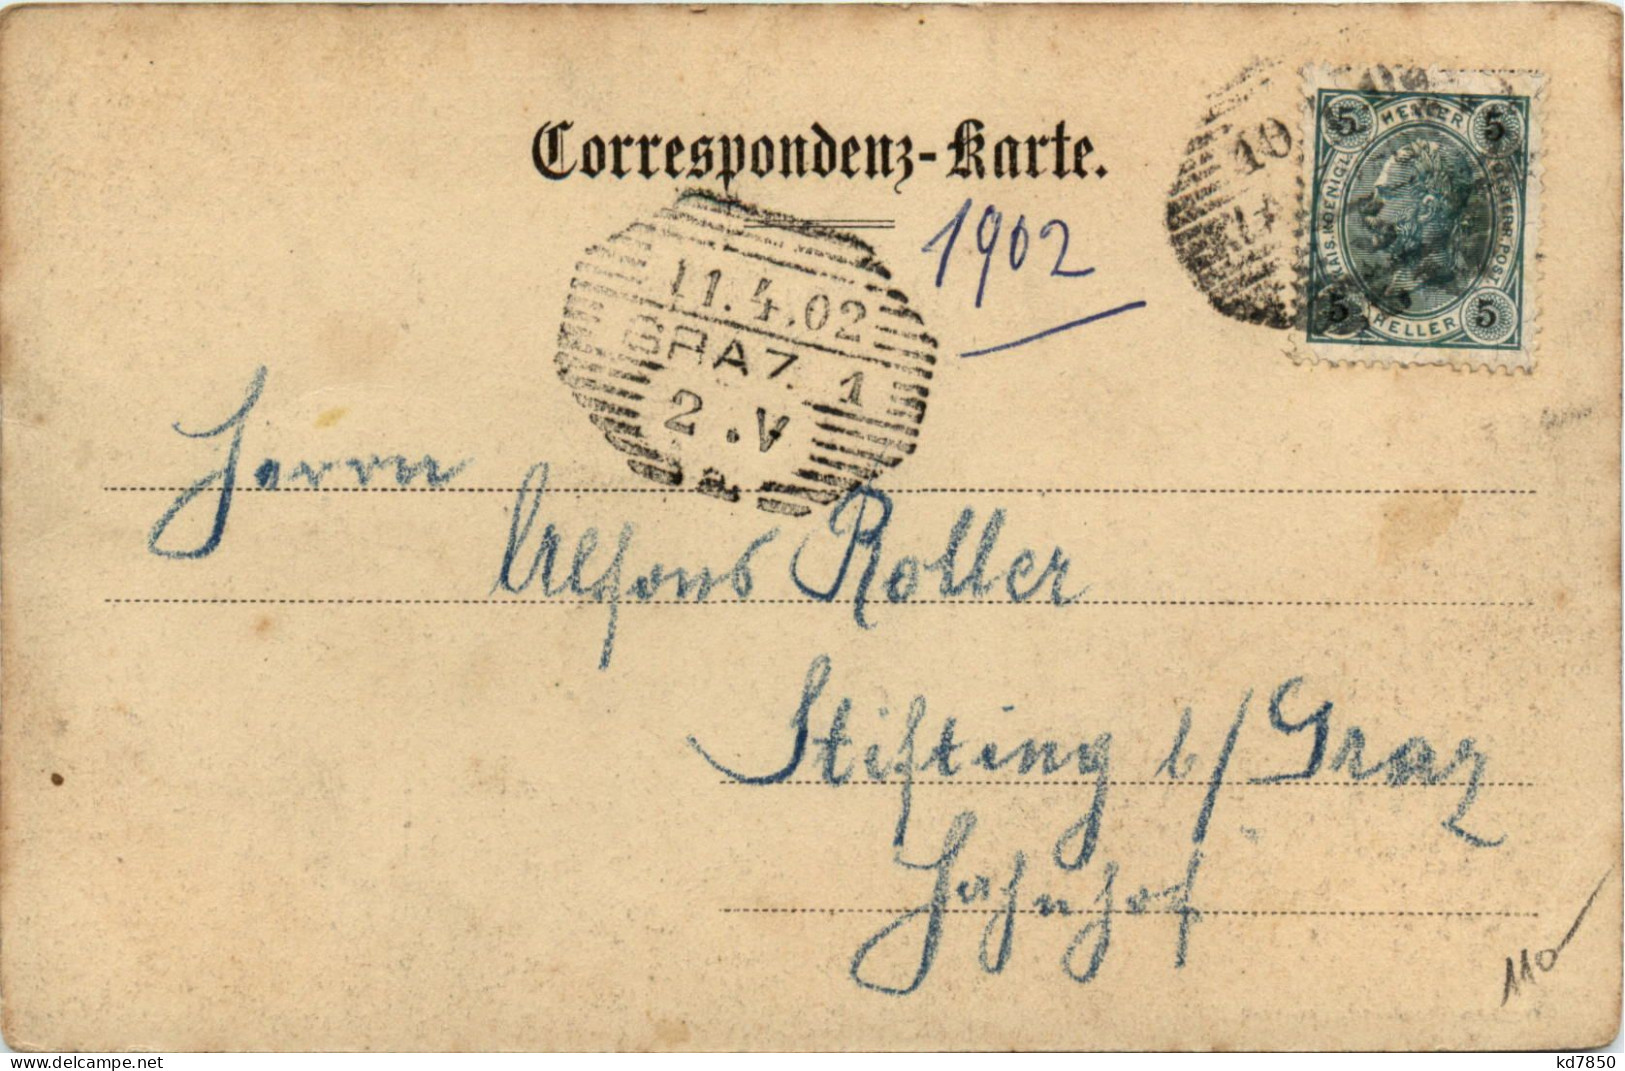 Correspondenz-Karte.
1902
11.4.02
GRAZ 1
2.V
a
10
5 HELLER 5
KAIS. KOENIGL.
OESTERR. POST
5 HELLER 5
Herrn
Alfons Roller
Stifting b/ Graz
Hahnhof
110
www.delcampe.net
kd7850